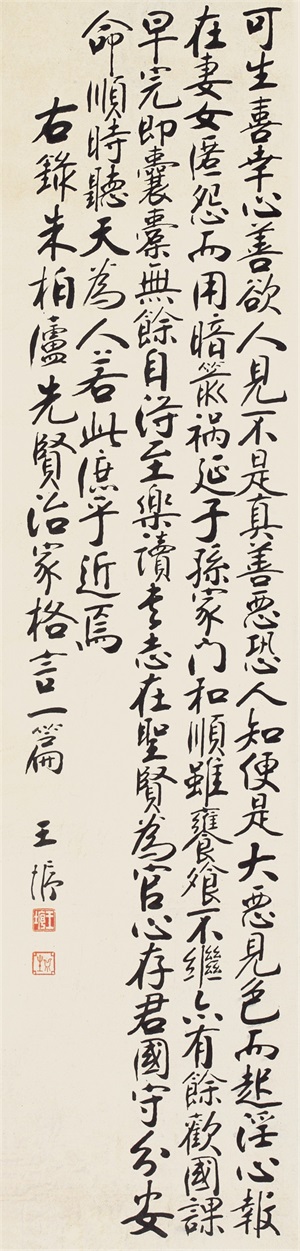 可生喜幸心善欲人見不是真善惡恐人知便是大惡見色而起淫心報
在妻女匿怨而用暗箭禍延子孫家門和順雖饔飧不繼亦有餘歡國課
早完即囊橐無餘自得至樂讀書志在聖賢為官心存君國守分安
命順時聽天為人若此庶乎近焉
右錄朱柏廬先賢治家格言一篇
王